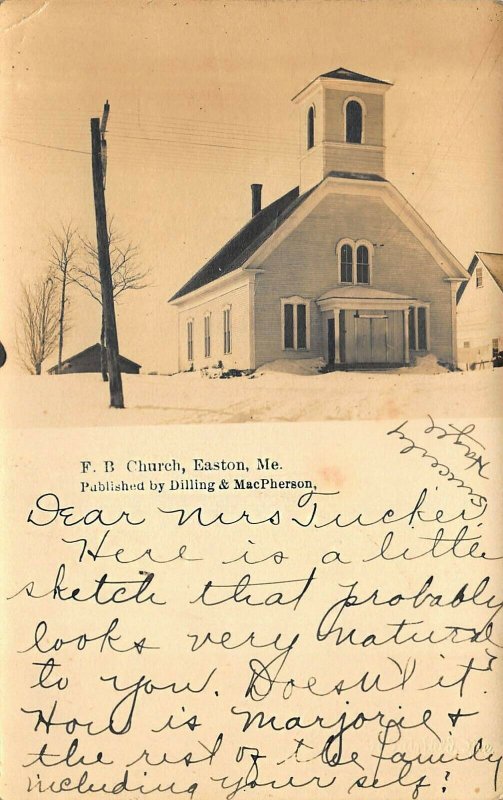 F. B Church, Easton, Me.
Published by Dilling & MacPherson,
Dear Mrs Tucker,
Here is a little
sketch that probably
looks very natural
to you. Doesn't it?
How is Marjorie &
the rest of the family
including your self?
Sincerely
Hazel